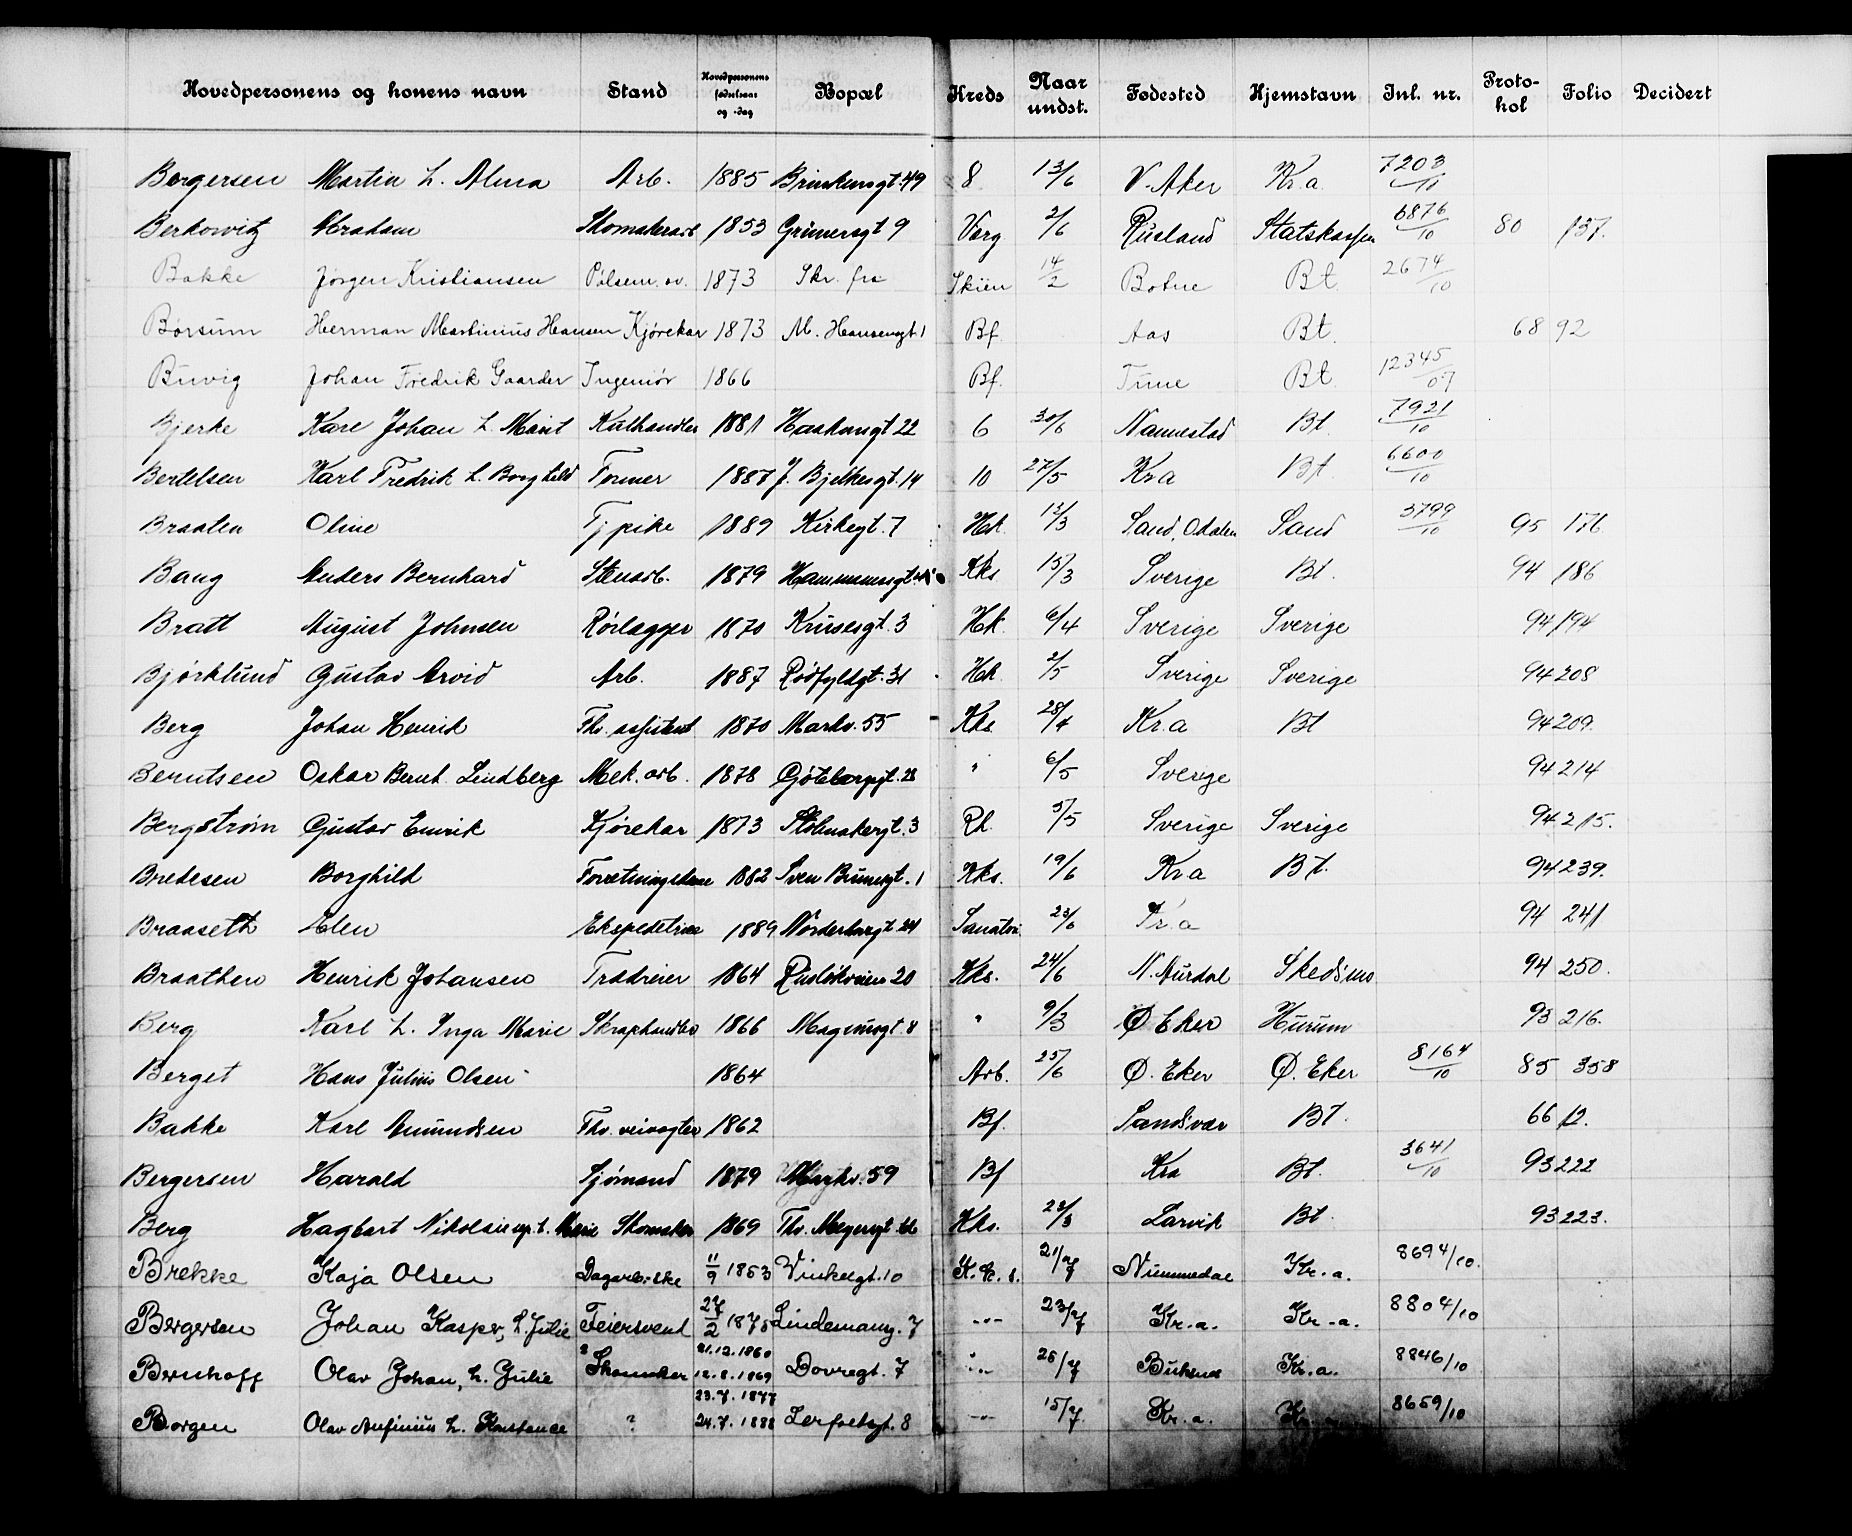 Hovedpersonens og konens navn Stand Hovedpersonens fødselsaar og -dag Bopæl Kreds Naar undst. Fødested Hjemstavn Inl. nr. Protokol Folio Decidert
Bergersen Martin h. Alma Arb. 1885 49 8 13/6 V. Aker Kr.a 7203/10
Berkowitz Abraham Skomakerarb 1853 Grünersgt 9 Varg 2/6 Rusland Statskassen 6876/10 80 137.
Bakke Jørgen Kristiansen Pølsem. 1873 Skr. fra Skien 14/2 Botne Bt. 2674/10
Børsum Herman Martinius Hansen Kjørekar 1873 M. Hansensgt 1 Bf. Aas Bt. 68 92
Buvig Johan Fredrik Gaarder Ingeniør 1866 Bf. Tune Bt. 12345/07
Bjerke Kare Johan h. Marit Kulhandler 1881 22 6 30/6 Nannestad Bt. 7921/10
Bertelsen Karl Fredrik h. Borghild Former 1887 J. Bjelkesgt. 14 10 27/5 Kr.a Bt. 6600/10
Braaten Oline Tj pike 1889 Kirkegt. 7 Hk. 12/3 Sand, Odalen Sand 3799/10 95 176
Bang Anders Bernhard Stenarb. 1879 Kks 15/3 Sverige Bt. 94 186
Bratt August Johnsen Rørlægger 1870 Krusesgt. 3 Hk. 6/4 Sverige Sverige 94 194
Bjørklund Gustav Arvid Arb. 1887 Rødfyldgt. 31 Hk. 2/5 Sverige Sverige 94 208
Berg Johan Henrik Thv. assistent 1870 Markv. 55 Kks. 28/4 Kr.a Bt 94 209.
Berntsen Oskar Bernt. Lindberg Mek. arb. 1878 Gøteborggt. 28 " 6/5 Sverige 94 214
Bergstrøm Gustav Emrik Kjørekar 1873 Stolmakergt. 3 Rh. 5/5 Sverige Sverige 94 215.
Bredesen Borghild 1882 Sven Brunsgt. 1 Kks. 19/6 Kr.a Bt. 94 239.
Braaseth Elen 1889 Norderhovgt. 24 Sanatori. 23/6 Kr.a 94 241
Braathen Henrik Johansen Trædreier 1864 Ruseløkveien 20 Kks. 24/6 N. Aurdal Skedsmo 94 250.
Berg Karl h. Inga Marie Skraphandler 1866 Magnusgt. 8 " 9/3 Ø Eker Hurum 93 216.
Berget Hans Julius Olsen 1864 Arb. 25/6 Ø. Eker Ø. Eker 8164/10 85 358
Bakke Karl Amundsen Thv. veivogter 1862 Bf. Sandsvær Bt. 66 12.
Bergersen Harald Sjømand 1879 Markv. 59 Bf Kra Bt. 3641/10 93 222
Berg Hagbart h. Marie Skomaker 1869 Th. Meyersgt. Kks. 22/3 Larvik Bt. 93 223.
Brekke Kaja Olsen 11/9 1853 Vinkelgt. 10 K.k.s. 21/7 Nummedal Kr.a. 8694/10.
Bergersen Johan Kasper, h. Julie Feiersvend 27/2 187 Lindemansg. 7 -"- 23/7 Kr.a. Kr.a. 8804/10
Bernhoff Olav Johan, h. Julie Skomaker 21.12.1860 12.8.1869 Dovregt. 7 -"- 26/7 Buksnes Kr.a. 8846/10
Borgen Olav Anfinius h. Konstance ? 23.7.1877 24.7.1888 8 -"- 15/7. Kr.a. Kr. a. 8659/10